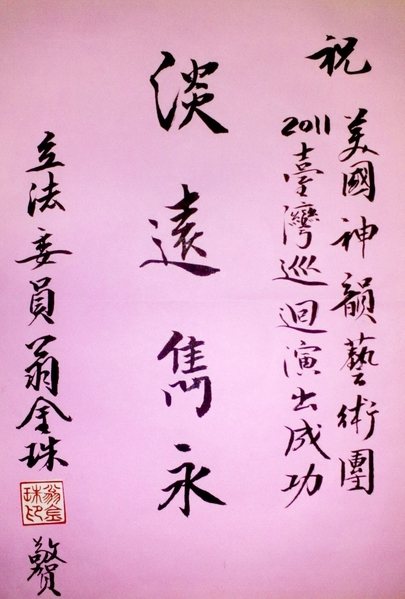 祝
美國神韻藝術團
2011臺灣巡迴演出成功
淡遠雋永
立法委員翁金珠
翁金珠印